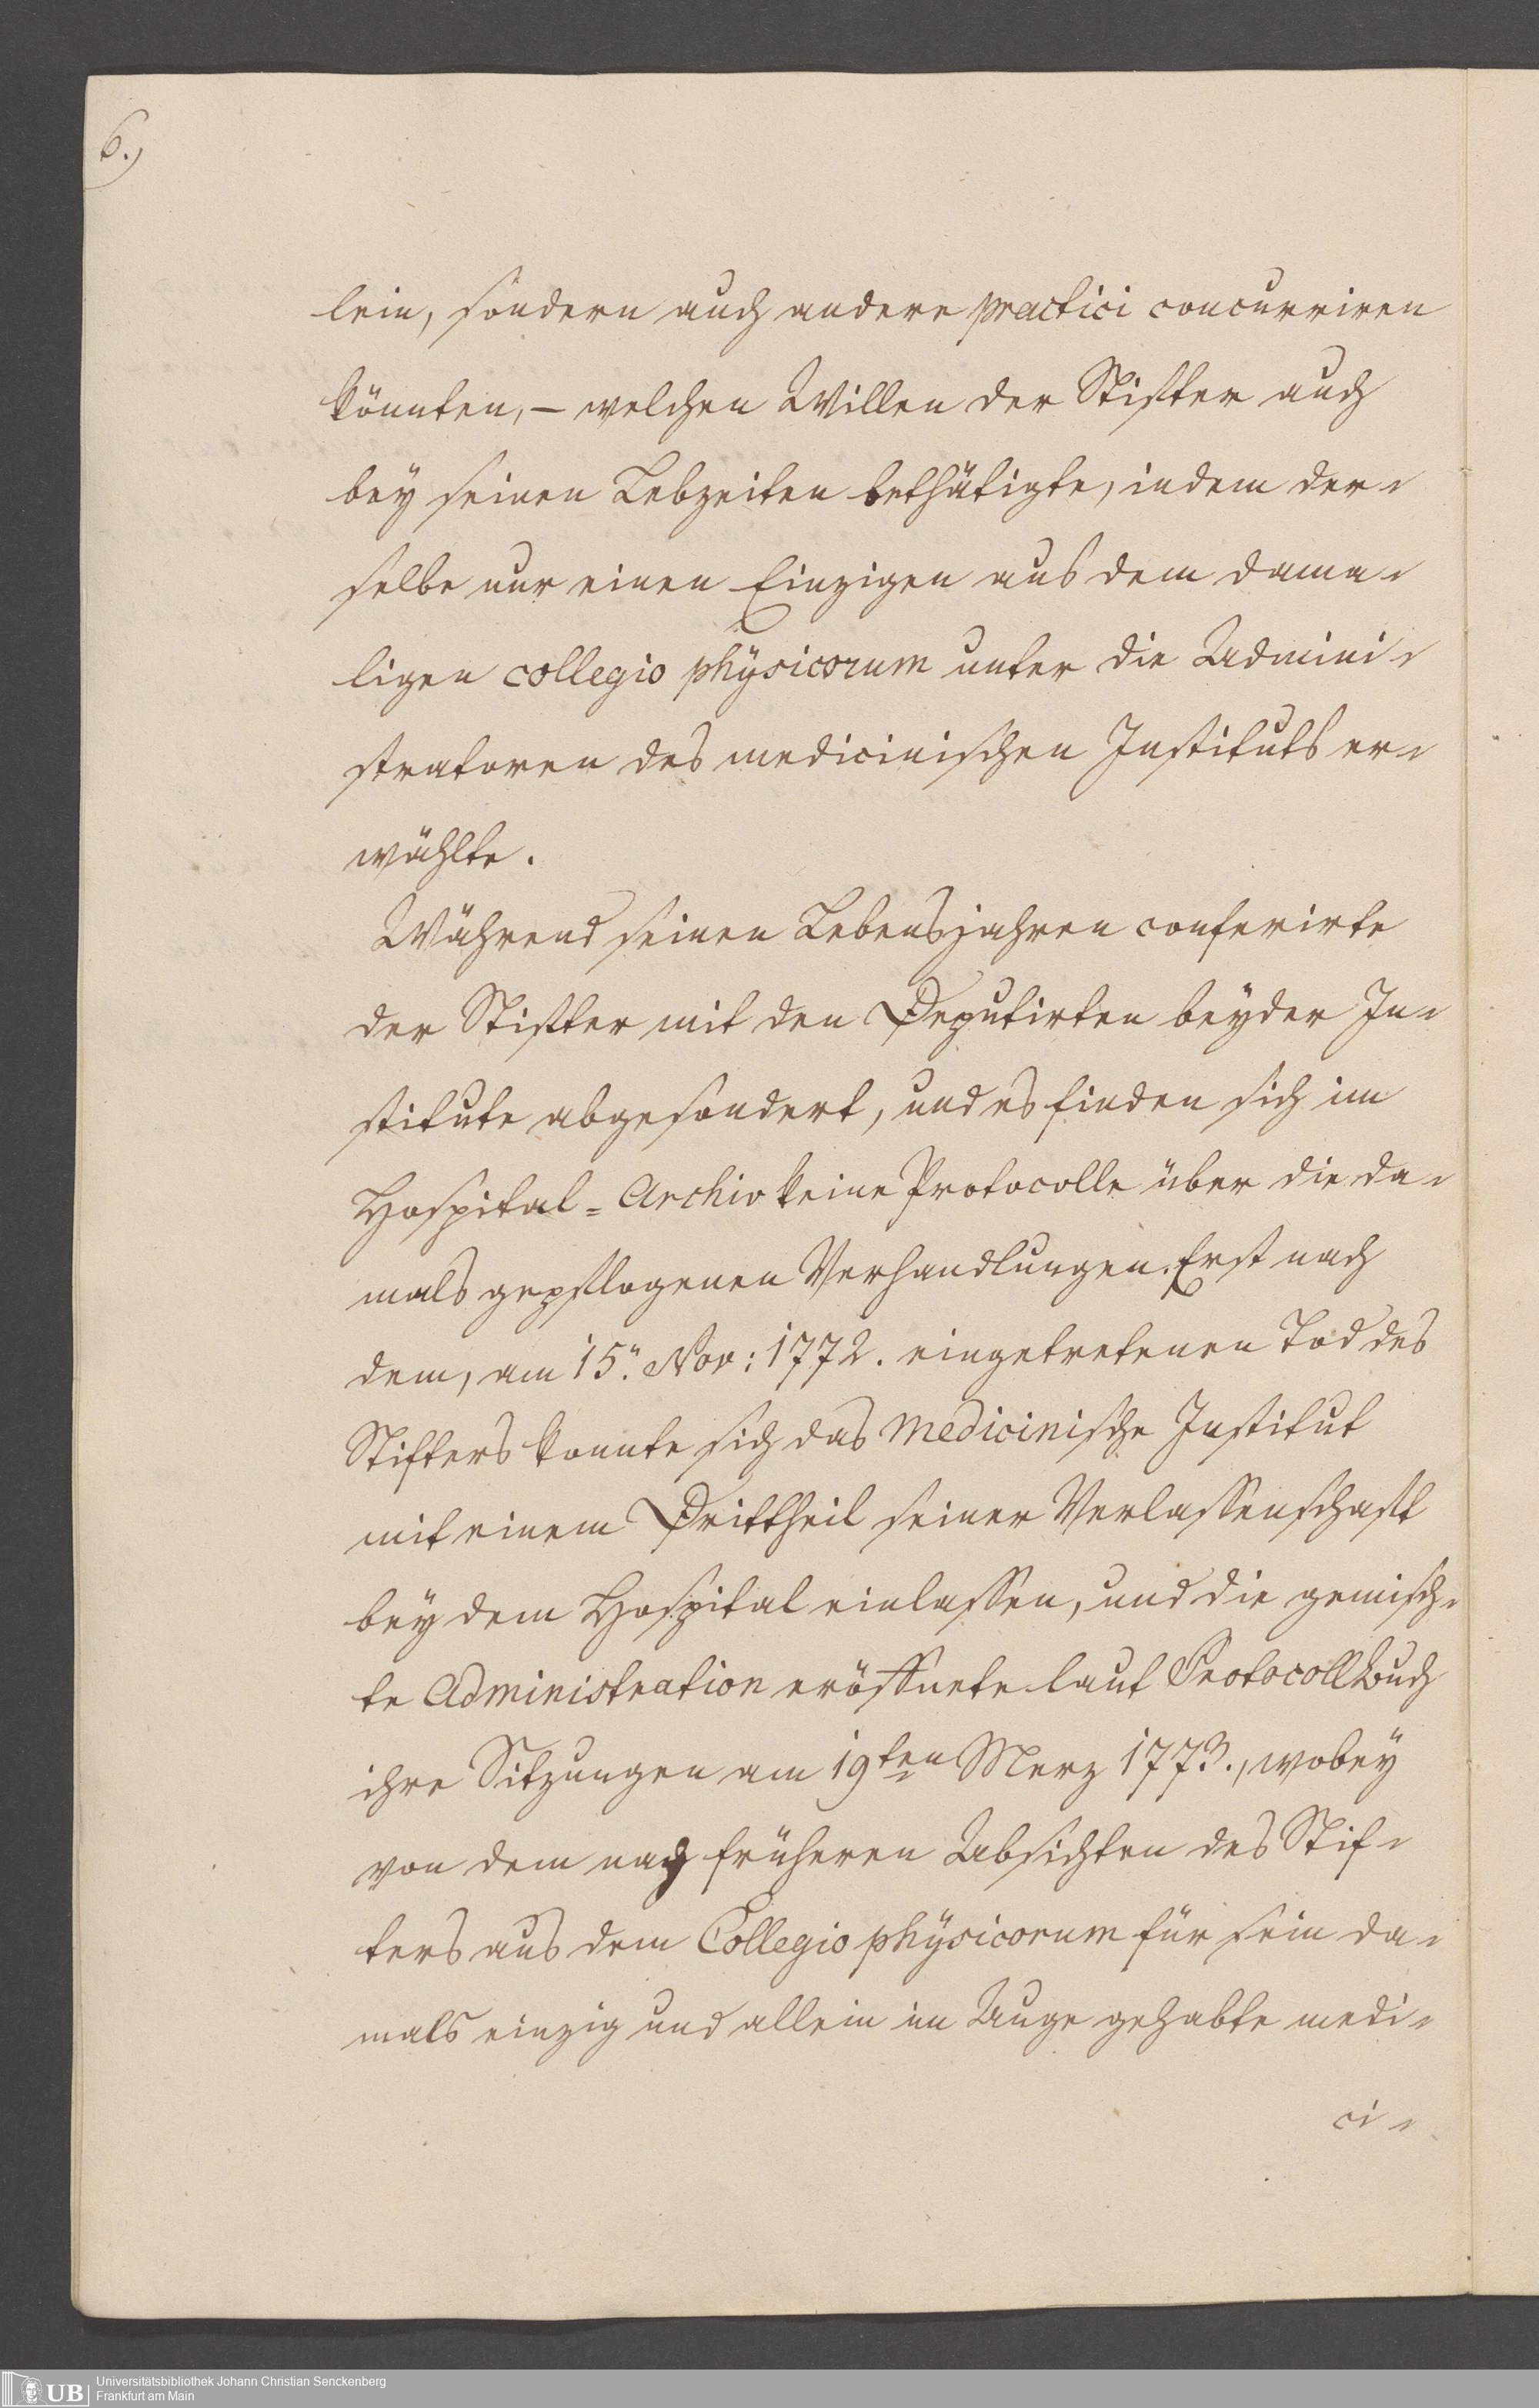 6.)
lein, sondern auch andere practici concurriren
könnten, – welchen Willen der Stifter auch
bey seinen Lebzeiten bethätigte, indem der-
selbe nur einen Einzigen aus dem dama-
ligen collegio physicorum unter die Admini-
stratoren des medicinischen Instituts er-
wählte.
Während seinen Lebensjahren conferirte
der Stifter mit den Deputirten beyder In-
stitute abgesondert, und es finden sich im
Hospital=Archiv keine Protocolle über die da-
mals gepflogenen Verhandlungen. Erst nach
dem, am 15. Nov: 1772. eingetretenen Tod des
Stifters konnte sich das medicinische Institut
mit einem Drittheil seiner Verlassenschaft
bey dem Hospital einlassen, und die gemisch-
te Administration eröffnete laut Protocollbuch
ihre Sitzungen am 19ten Merz 1773., wobey
von dem nach früheren Absichten des Stif-
ters aus dem Collegio physicorum für sein da-
mals einzig und allein im Auge gehabte medi-
ci-
UB
Universitätsbibliothek Johann Christian Senckenberg
Frankfurt am Main